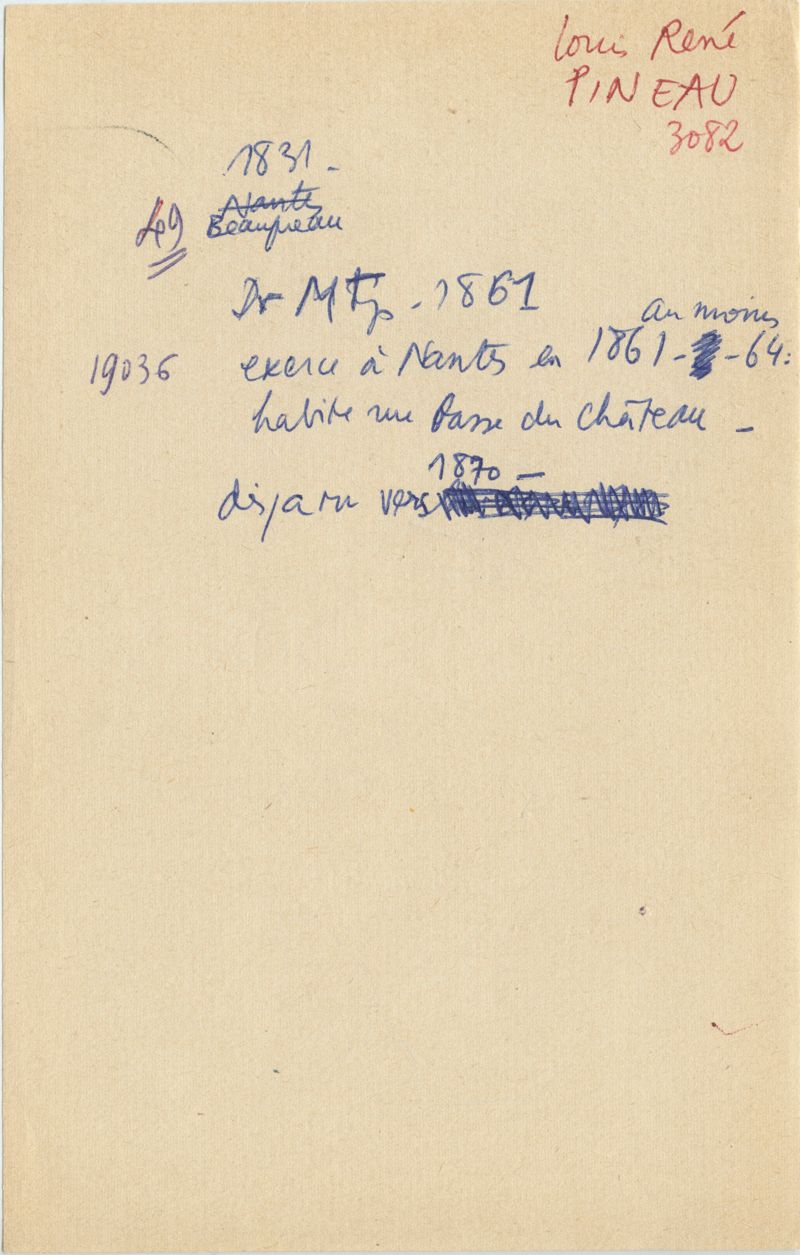 Louis René
PINEAU
3082
1831 -
Nantes
49 Beaupreau
Dr MTp - 1861
au moins
19036 exerce à Nantes en 1861 - - 64:
habite rue Basse du Château -
1870 -
disparu vers